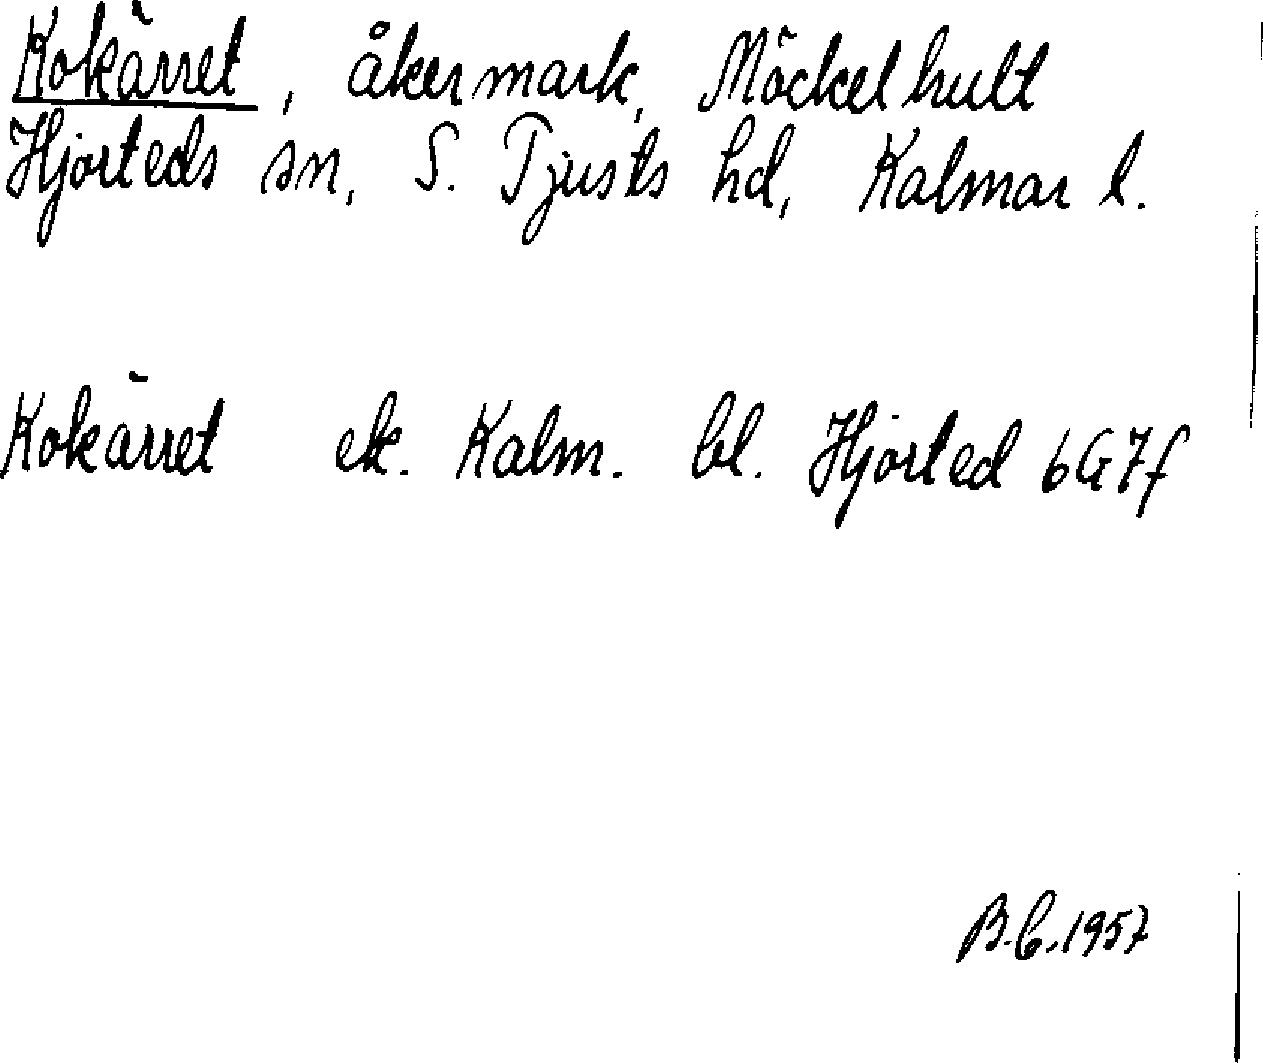 Kokärret, åkermark, Möckelhult
Hjorteds sn, S. Tjusts hd, Kalmar l.
Kokärret ek. Kalm. bl. Hjorted 6G7f
B.C. 1957